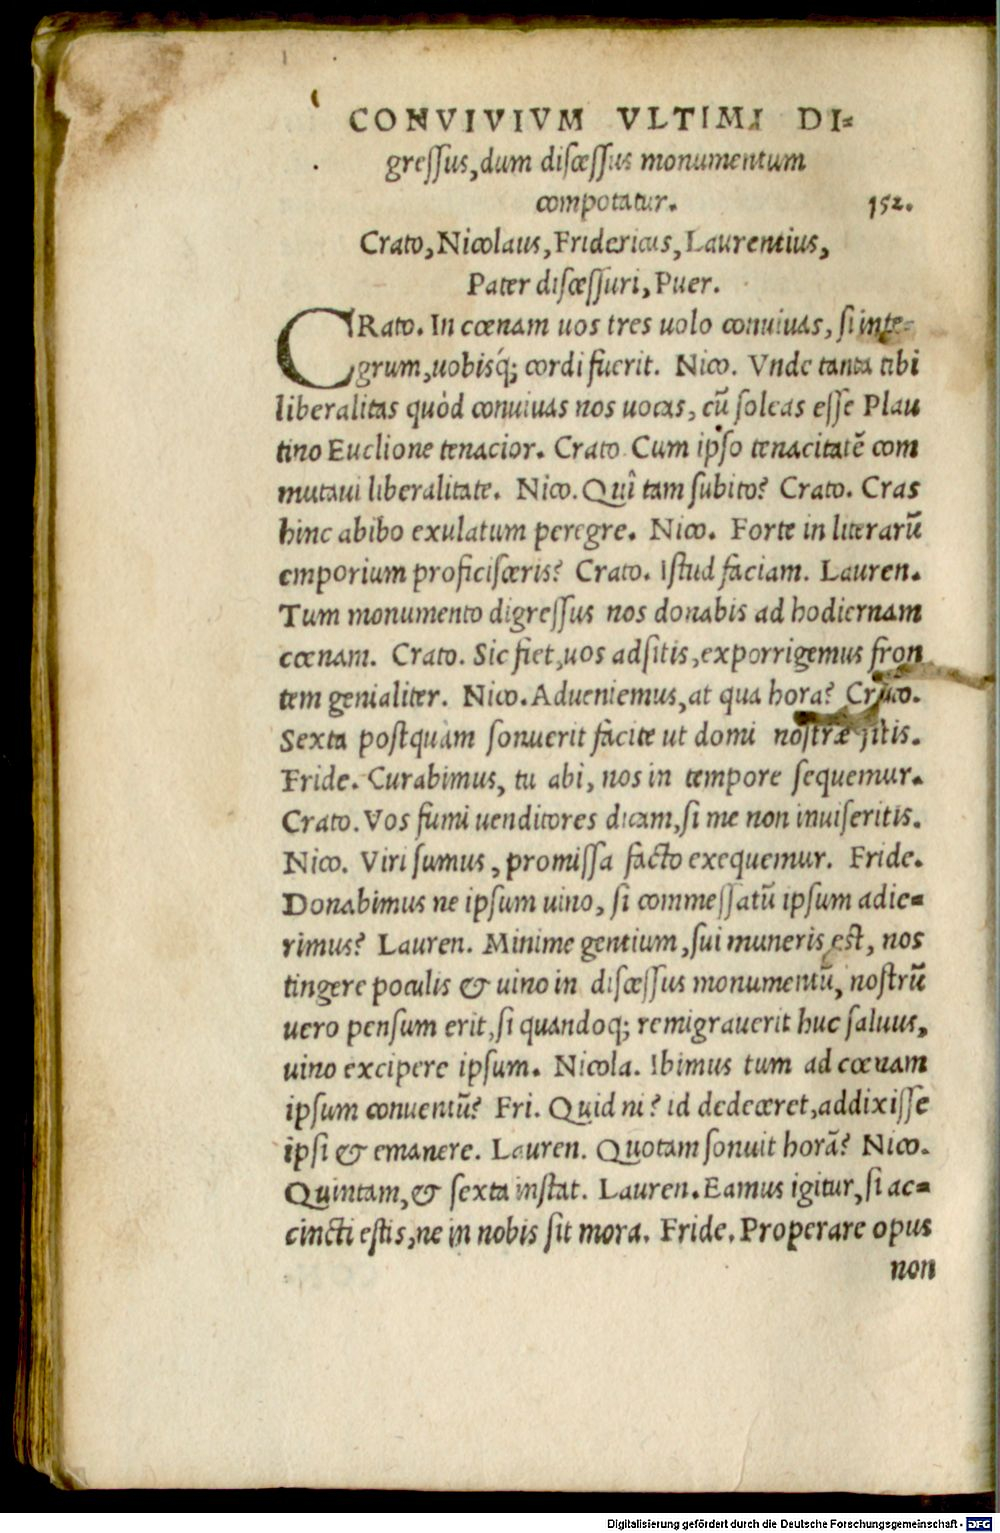 CONVIVIVM VLTIMI DI=
gressus, dum discessus monumentum
compotatur. 152.
Crato, Nicolaus, Fridericus, Laurentius,
Pater discessuri, Puer.
CRato. In cœnam uos tres uolo conuiuas, si inte-
grum, uobisq́; cordi fuerit. Nico. Vnde tanta tibi
liberalitas quòd conuiuas nos uocas, cū soleas esse Plau
tino Euclione tenacior. Crato. Cum ipso tenacitatē com
mutaui liberalitate. Nico. Quî tam subito? Crato. Cras
hinc abibo exulatum peregre. Nico. Forte in literarū
emporium proficisceris? Crato. Istud faciam. Lauren.
Tum monumento digressus nos donabis ad hodiernam
cœnam. Crato. Sic fiet, uos adsitis, exporrigemus fron
tem genialiter. Nico. Adueniemus, at qua hora? Crato.
Sexta postquam sonuerit facite ut domi nostræ sitis.
Fride. Curabimus, tu abi, nos in tempore sequemur.
Crato. Vos fumi uenditores dicam, si me non inuiseritis.
Nico. Viri sumus, promissa facto exequemur. Fride.
Donabimus ne ipsum uino, si commessatū ipsum adie=
rimus? Lauren. Minime gentium, sui muneris est, nos
tingere poculis & uino in discessus monumentū, nostrū
uero pensum erit, si quandoq; remigrauerit huc saluus,
uino excipere ipsum. Nicola. Ibimus tum ad cœnam
ipsum conuentū? Fri. Quid ni? id dedeceret, addixisse
ipsi & emanere. Lauren. Quotam sonuit horā? Nico.
Quintam, & sexta instat. Lauren. Eamus igitur, si ac=
cincti estis, ne in nobis sit mora. Fride. Properare opus
non
Digitalisierung gefördert durch die Deutsche Forschungsgemeinschaft - DFG